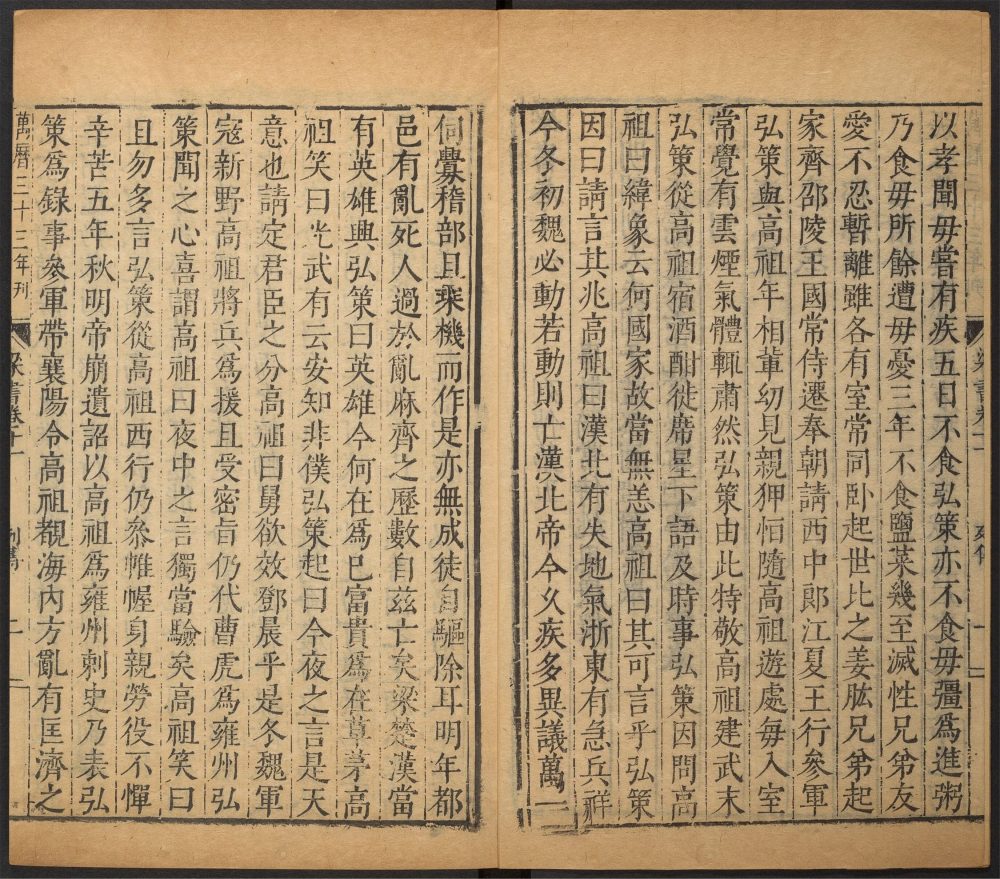 以孝聞毋嘗有疾五日不食弘策亦不食毋彊爲進粥
乃食毋所餘遭毋憂三年不食鹽菜幾至滅性兄弟友
愛不忍暫離雖各有室常同卧起世比之姜肱兄弟起
家齊邵陵王國常侍遷奉朝請西中郎江夏王行參軍
弘策與高祖年相輩幼見親狎恒隨高祖遊處每入室
常覺有雲煙氣體輒肅然弘策由此特敬高祖建武末
弘策從高祖宿酒酣徙席星下語及時事弘策因問高
祖曰緯象云何國家故當無恙高祖曰其可言乎弘策
因曰請言其兆高祖曰漢北有失地氣浙東有急兵祥
今冬初魏必動若動則亡漢北帝今久疾多異議萬一
伺釁稽部且乘機而作是亦無成徒自驅除耳明年都
邑有亂死人過於亂麻齊之歷數自茲亡矣梁楚漢當
有英雄興弘策曰英雄今何在爲已富貴爲在草茅高
祖笑曰光武有云安知非僕弘策起曰今夜之言是天
意也請定君臣之分高祖曰舅欲效鄧晨乎是冬魏軍
寇新野高祖將兵爲援且受密旨仍代曹虎爲雍州弘
策聞之心喜謂高祖曰夜中之言獨當驗矣高祖笑曰
且勿多言弘策從高祖西行仍參帷幄身親勞役不憚
辛苦五年秋明帝崩遺詔以高祖爲雍州刺史乃表弘
策爲錄事參軍帶襄陽令高祖覩海內方亂有匡濟之
萬曆三十三年刊
梁書卷十一
列傳
二